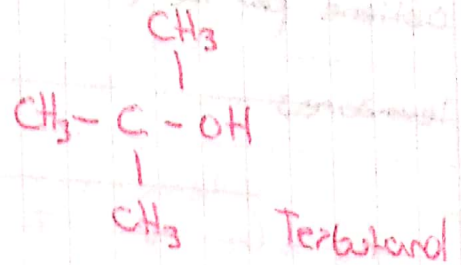 CH3
CH3 - C - OH
CH3
Terbutanol